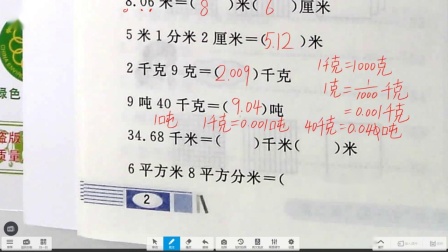 8.06米=(8)米(6)厘米
5米1分米2厘米=(5.12)米
2千克9克=(2.009)千克
1千克=1000克
1克=1/1000千克
=0.001千克
9吨40千克=(9.04)吨
1吨 1千克=0.001吨 40千克=0.040吨
34.68千米=( )千米( )米
6平方米8平方分米=(
2
绿色
盗版
质量